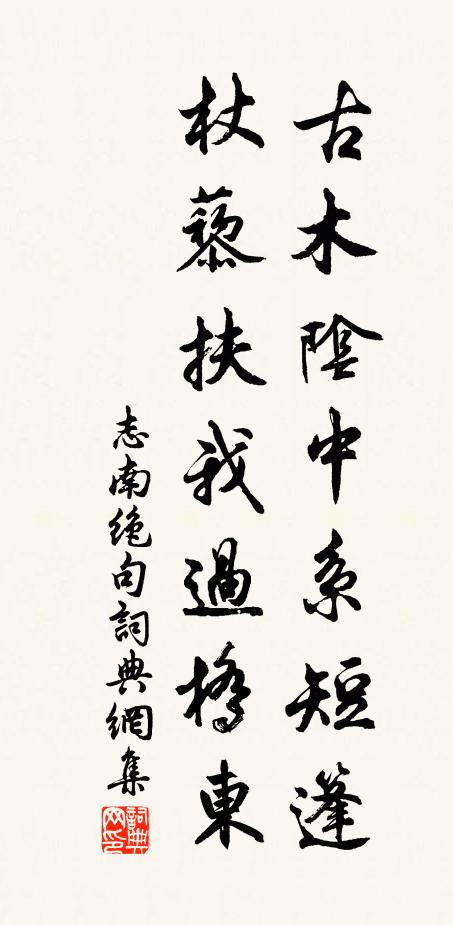 古木陰中系短篷
杖藜扶我過橋東
志南絶句詞典網集
詞典
网印